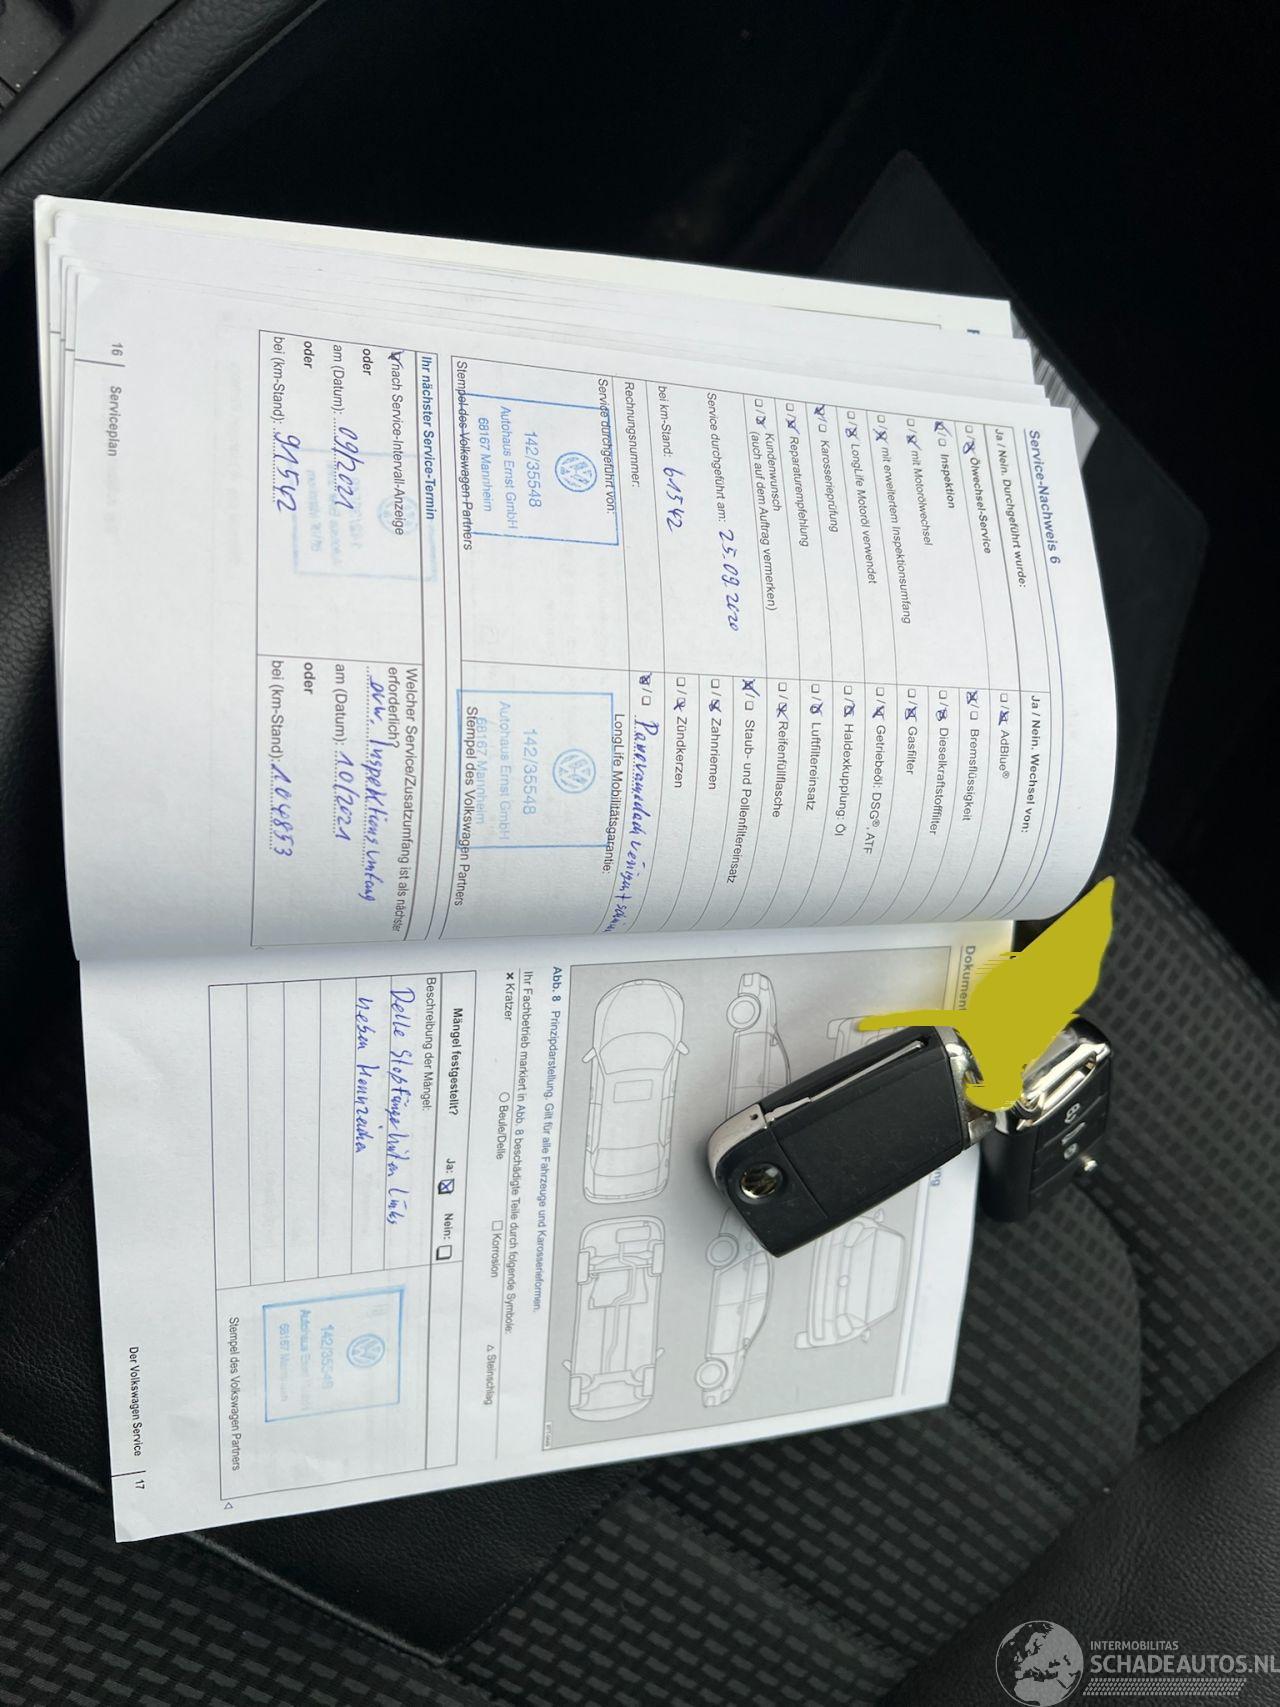 Service-Nachweis 6
Ja / Nein. Durchgeführt wurde:
Ölwechsel-Service
Inspektion
mit Motorölwechsel
mit erweitertem Inspektionsumfang
LongLife Motoröl verwendet
Karosserieprüfung
Reparaturempfehlung
Kundenwunsch
(auch auf dem Auftrag vermerken)
Service durchgeführt am: 25.09.2020
bei km-Stand: 61542
Rechnungsnummer:
Service durchgeführt von:
142/35548
Autohaus Ernst GmbH
68167 Mannheim
Stempel des Volkswagen Partners
Ja / Nein. Wechsel von:
AdBlue®
Bremsflüssigkeit
Dieselkraftstofffilter
Gasfilter
Getriebeöl: DSG®, ATF
Haldexkupplung: Öl
Luftfiltereinsatz
Reifenfüllflasche
Staub- und Pollenfiltereinsatz
Zahnriemen
Zündkerzen
LongLife Mobilitätsgarantie:
142/35548
Autohaus Ernst GmbH
68167 Mannheim
Stempel des Volkswagen Partners
Ihr nächster Service-Termin
nach Service-Intervall-Anzeige
oder
am (Datum): 09/2021
oder
bei (km-Stand): 91542
Welcher Service/Zusatzumfang ist als nächster
erforderlich?
erw. Inspektionsumfang
am (Datum): 10/2021
oder
bei (km-Stand): 104853
16 | Serviceplan
Dokument
ng
Abb. 8 Prinzipdarstellung. Gilt für alle Fahrzeuge und Karosserieformen.
Ihr Fachbetrieb markiert in Abb. 8 beschädigte Teile durch folgende Symbole:
× Kratzer
○ Beule/Delle
□ Korrosion
△ Steinschlag
Mängel festgestellt? Ja: Nein:
Beschreibung der Mängel:
Delle Stoßfänger hinten links
neben Kennzeichen
142/35548
Autohaus Ernst
68167 Mannheim
Stempel des Volkswagen Partners
Der Volkswagen Service | 17
INTERMOBILITAS
SCHADEAUTOS.NL